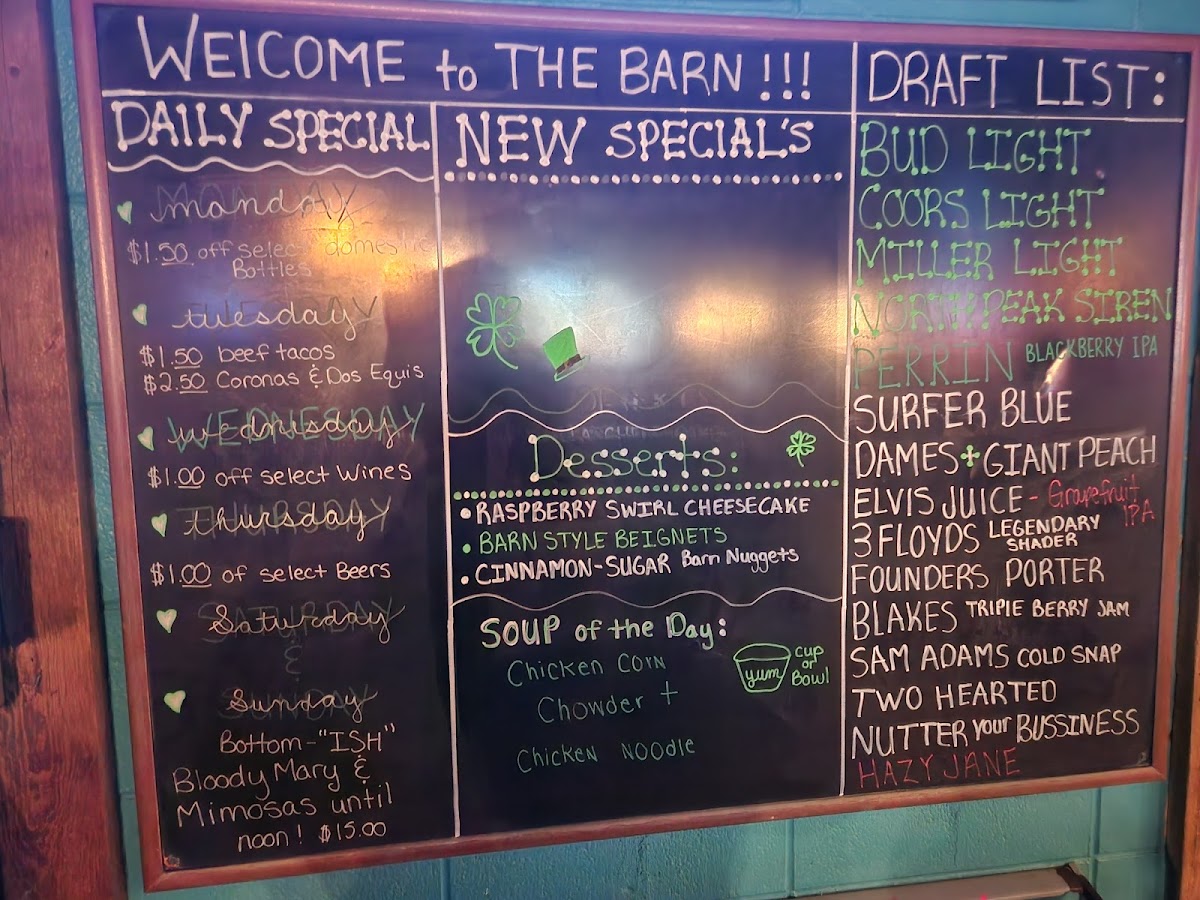 WELCOME to THE BARN !!!
DAILY SPECIAL
Monday
$1.50 off select domestic
Bottles
tuesday
$1.50 beef tacos
$2.50 Coronas & Dos Equis
wednesday
$1.00 off select Wines
thursday
$1.00 of select Beers
Saturday
&
Sunday
Bottom-"ISH"
Bloody Mary &
Mimosas until
noon! $15.00
NEW SPECIAL'S
Desserts:
• RASPBERRY SWIRL CHEESECAKE
• BARN STYLE BEIGNETS
• CINNAMON-SUGAR Barn Nuggets
SOUP of the Day:
Chicken Corn
Chowder +
Chicken NOOdle
yum
cup
or
Bowl
DRAFT LIST:
BUD LIGHT
COORS LIGHT
MILLER LIGHT
NORTH PEAK SIREN
PERRIN BLACKBERRY IPA
SURFER BLUE
DAMES + GIANT PEACH
ELVIS JUICE - Grapefruit
IPA
3 FLOYDS LEGENDARY
SHADER
FOUNDERS PORTER
BLAKES TRIPIE BERRY JAM
SAM ADAMS COLD SNAP
TWO HEARTED
NUTTER your BUSSINESS
HAZY JANE